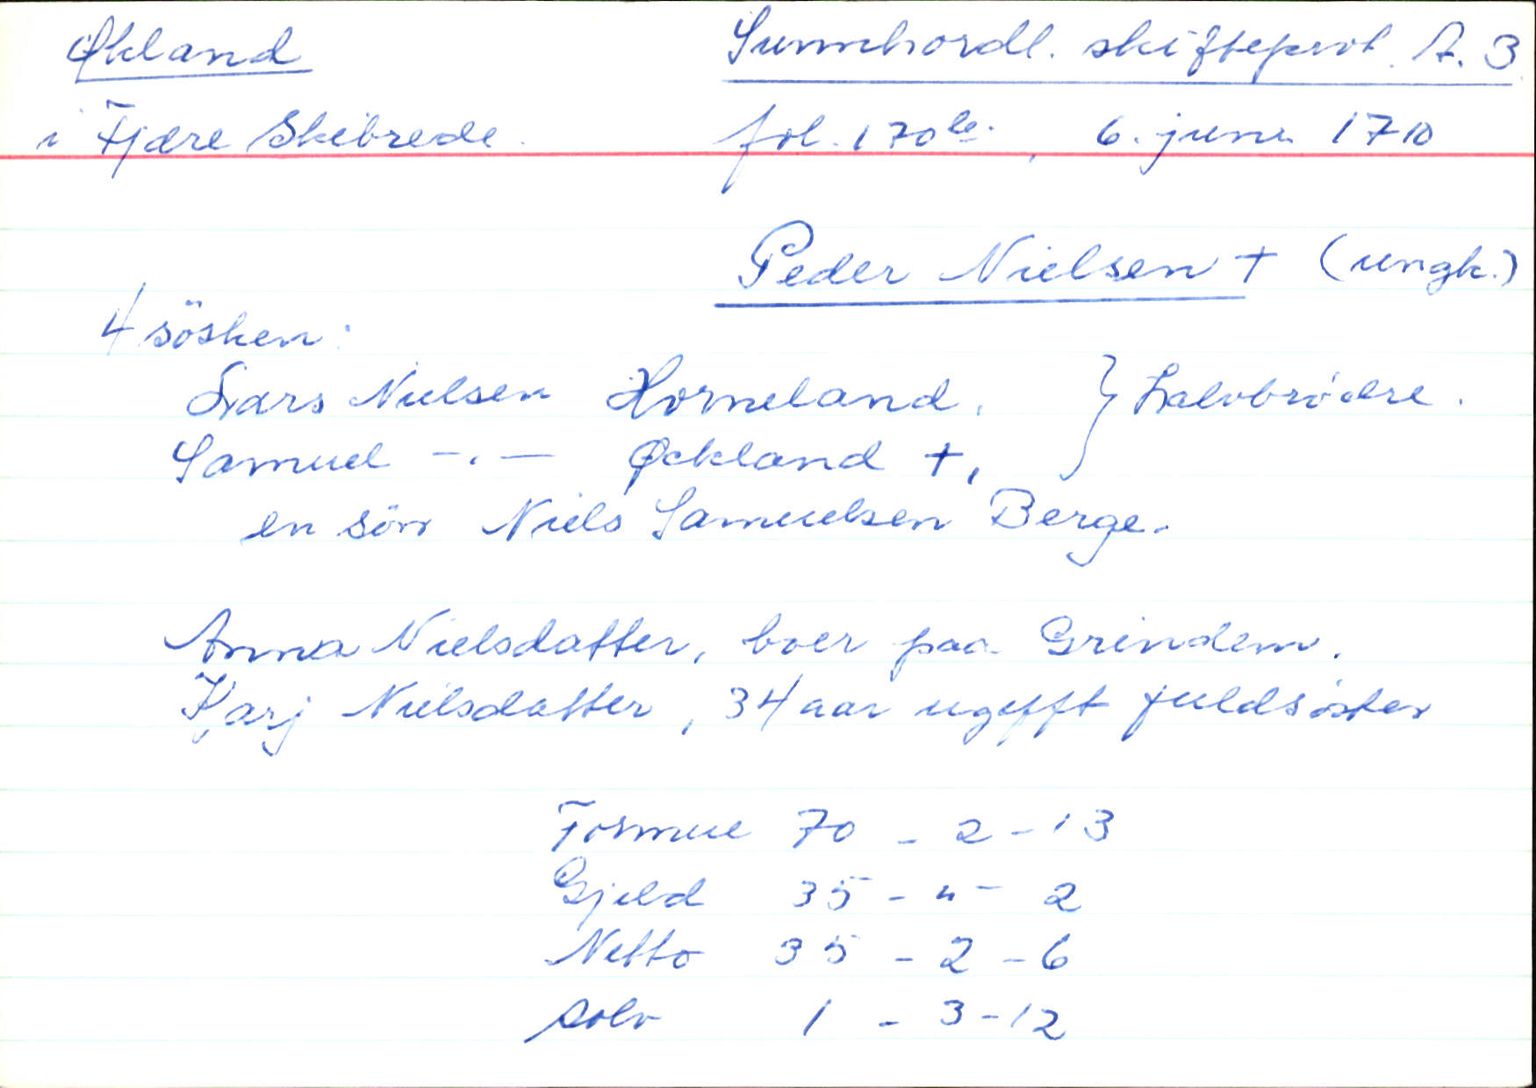 Økland
Sunnhordl. skifteprot. A. 3
i Fjære Skibrede.
fol. 170b. , 6. juni 1710
Peder Nielsen + (ungk.)
4 sösken:
Lars Nielsen Horneland, } Halvbrödre.
Samuel -.- Øckland +,
en sön Niels Samuelsen Berge.
Anna Nielsdatter, boer paa Grindem.
Karj Nielsdatter, 34 aar ugifft fuldsöster
Formue 70 - 2 - 13
Gjeld 35 - " - 2
Netto 35 - 2 - 6
Sölv 1 - 3 - 12